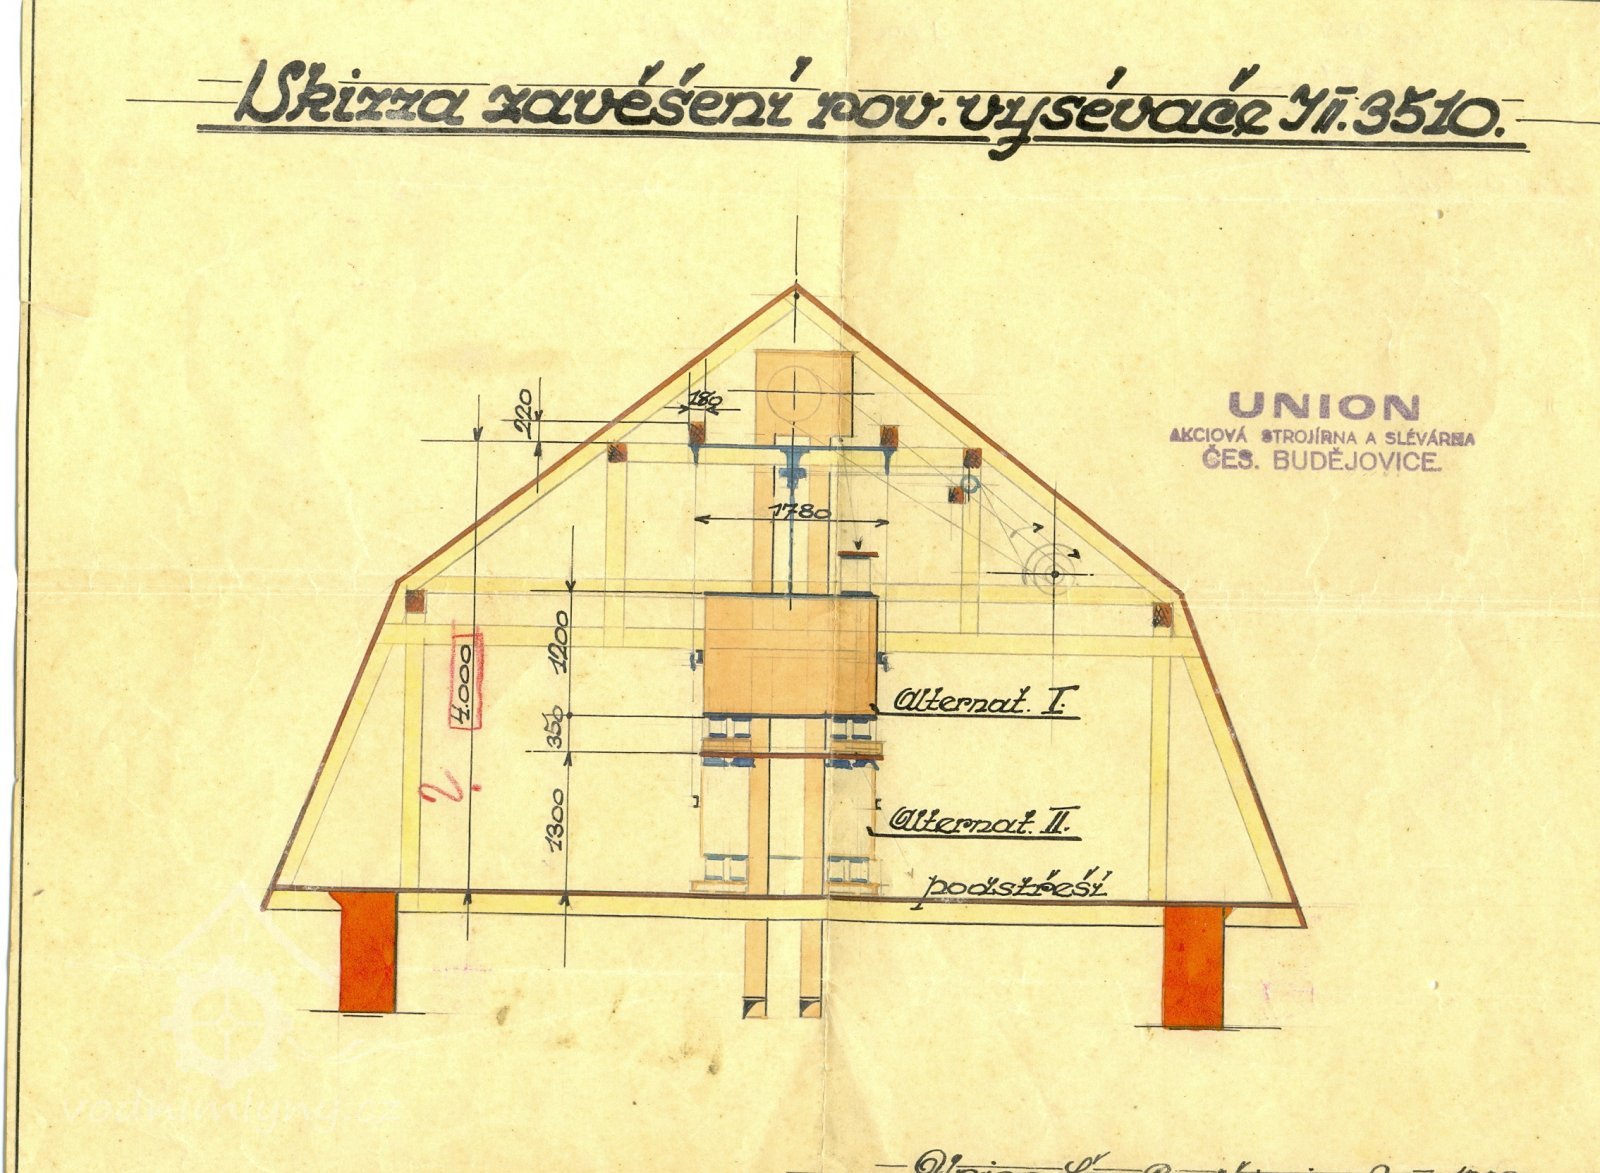 Skizza zavěšení rov. vysévače III. 3510.
UNION
AKCIOVÁ STROJÍRNA A SLÉVÁRNA
ČES. BUDĚJOVICE.
220
180
1780
1200
4.000
350
Alternat. I.
?
1300
Alternat. II.
podstřeší
vodnimlyny.cz